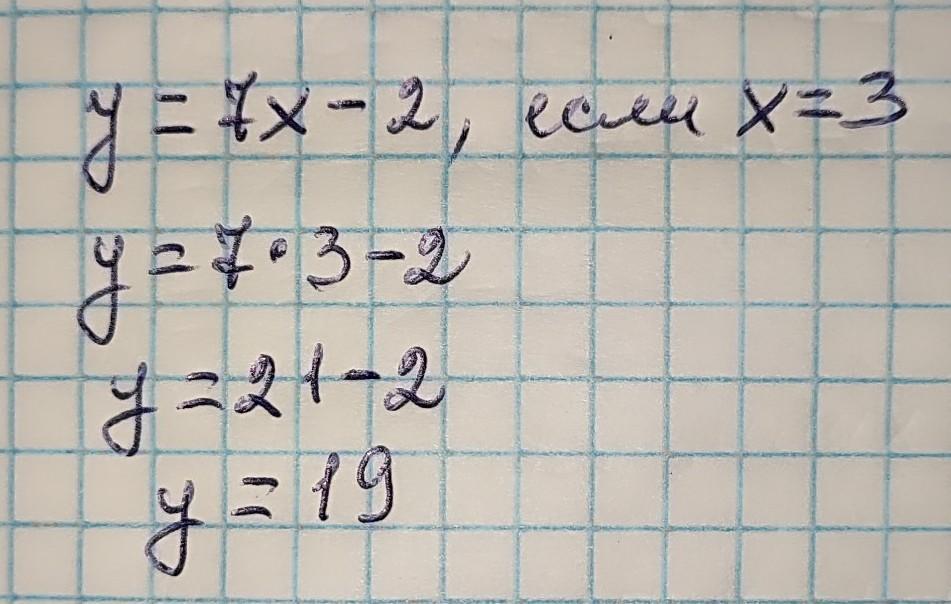 y = 7x - 2, если x = 3
y = 7 · 3 - 2
y = 21 - 2
y = 19